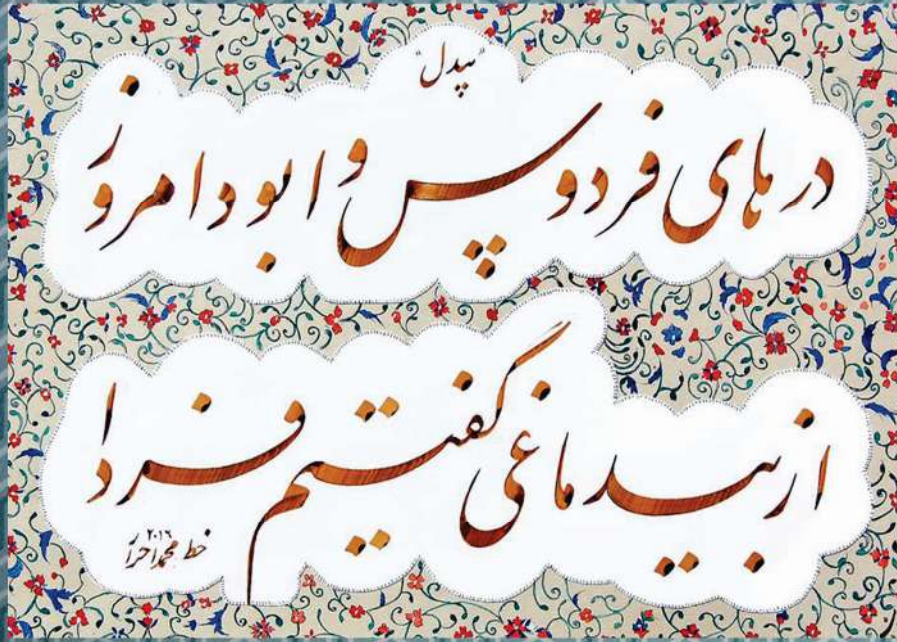 "بیدل"
درهای فردوس وا بود امروز
از بیدماغی گفتیم فردا
خط محمد احرار ۲۰۱۶